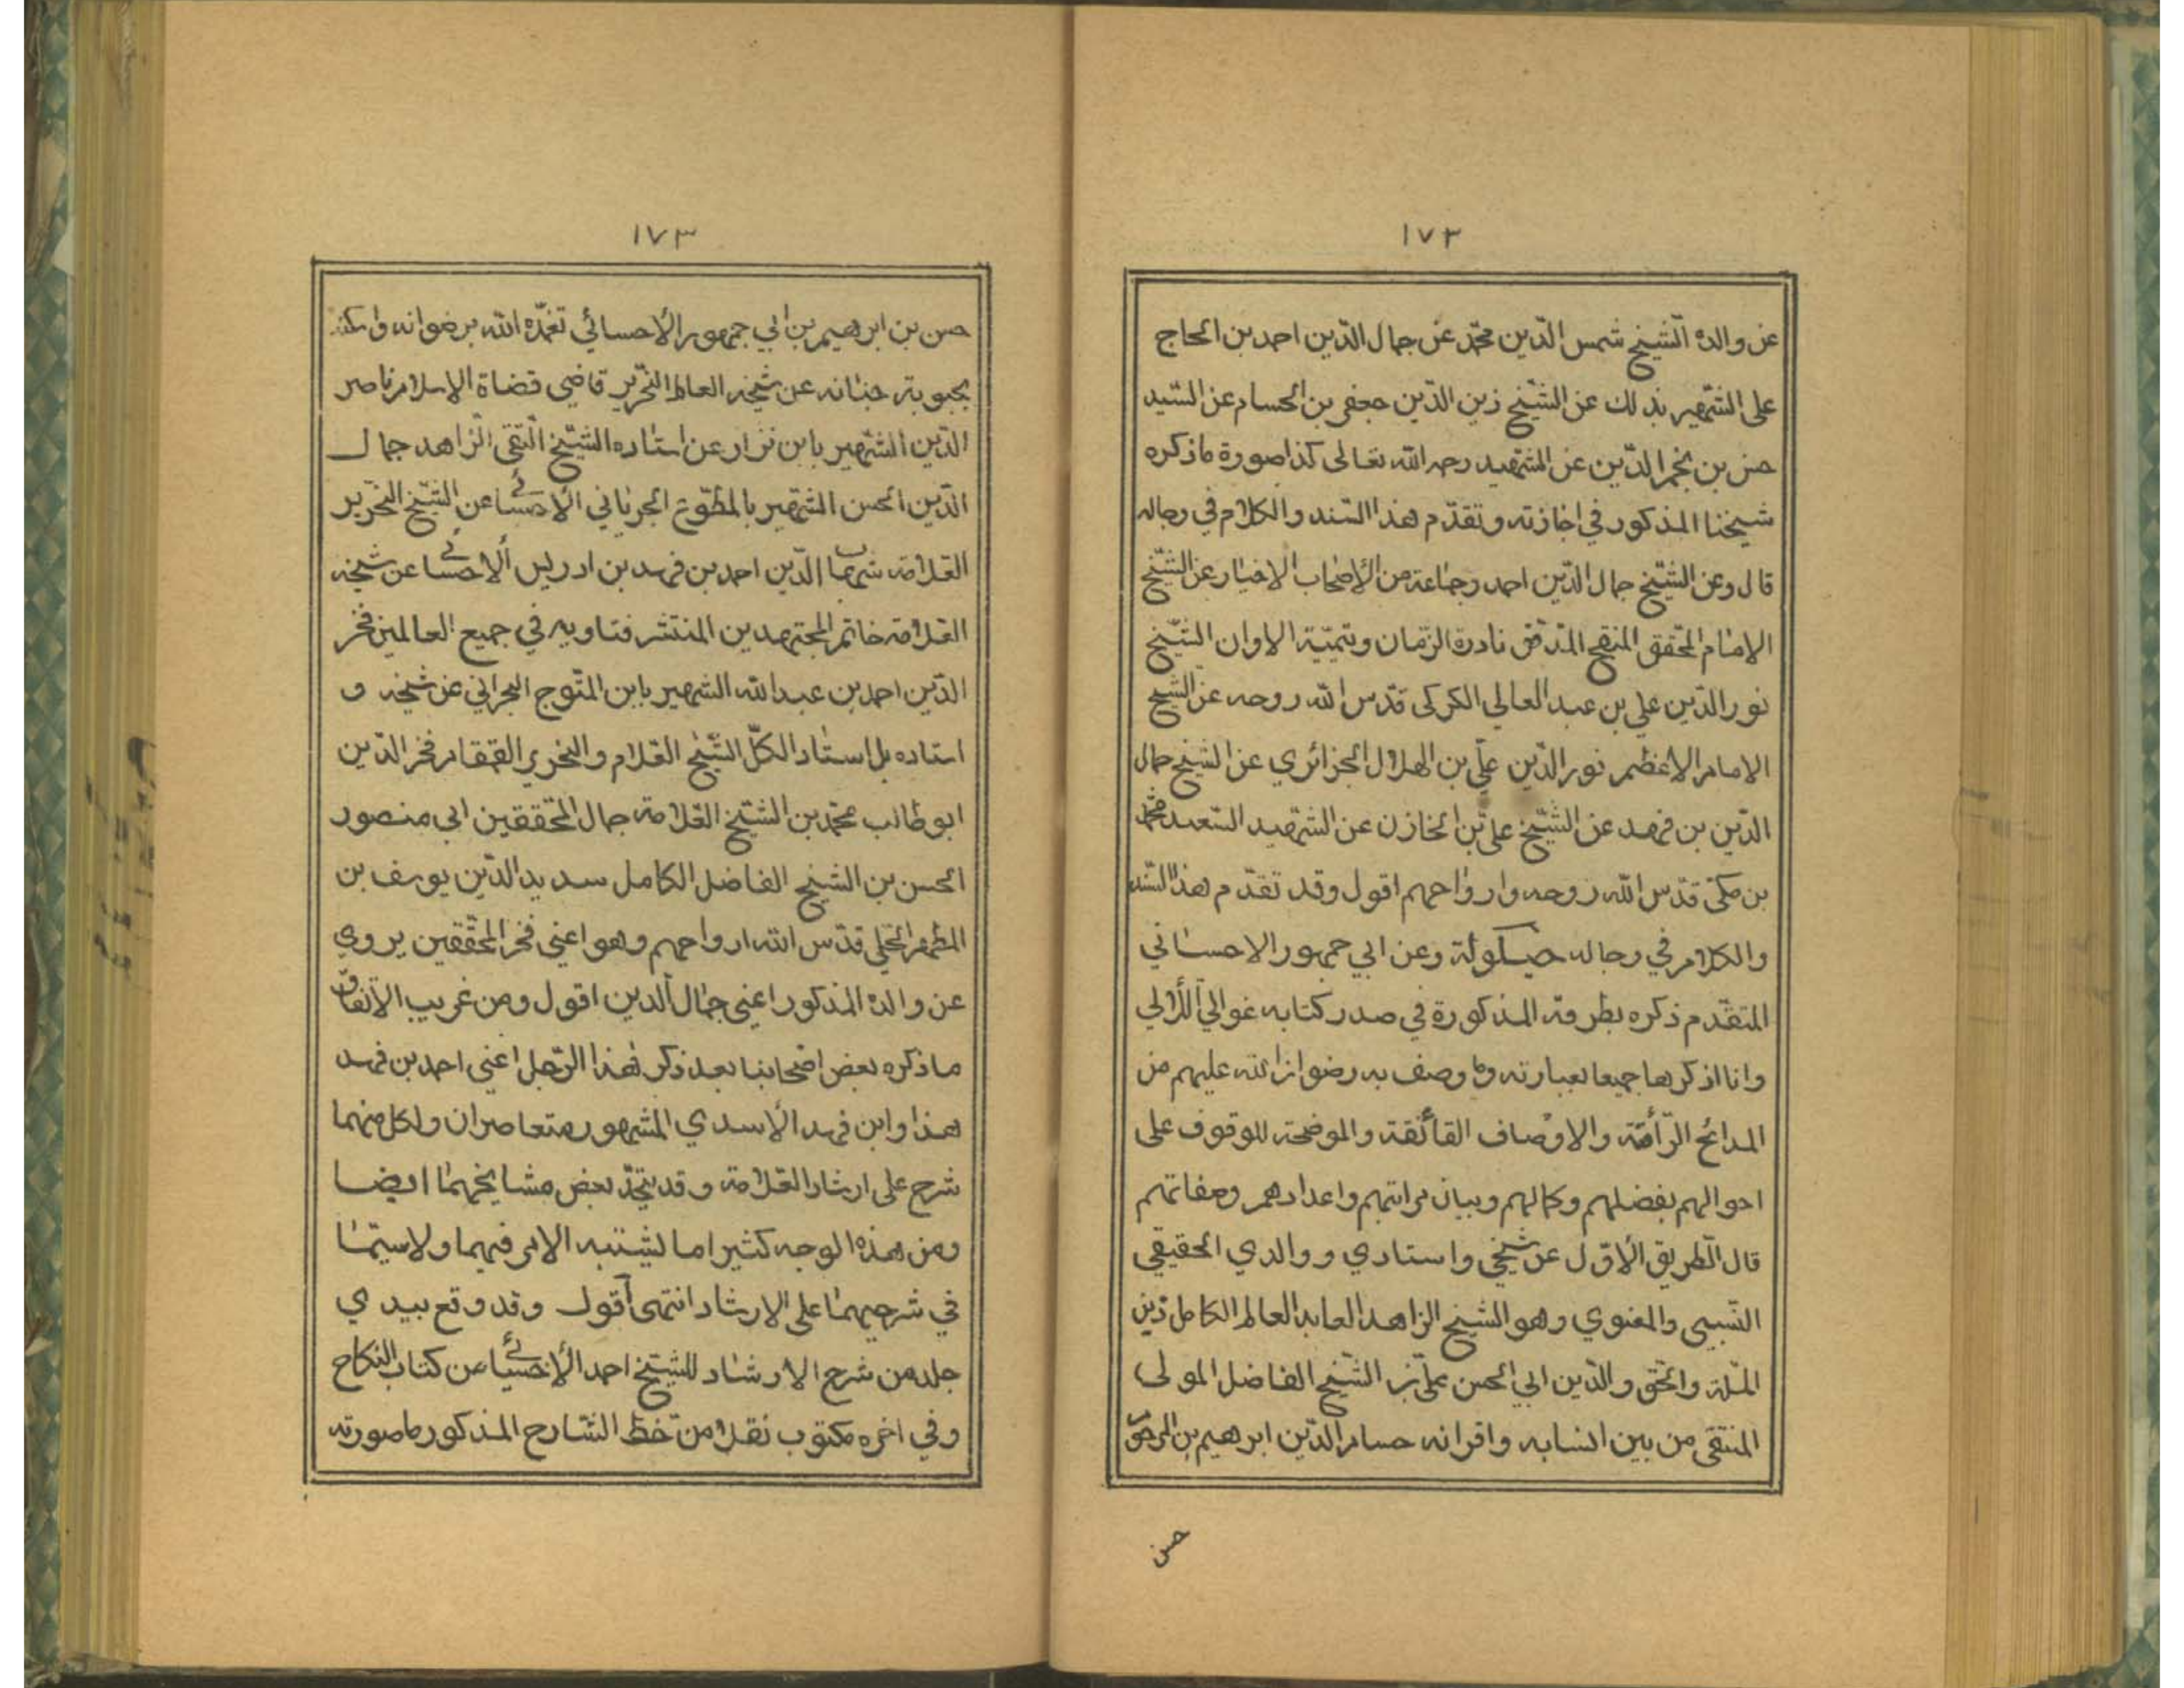 ١٧٢
عن والده الشيخ شمس الدّين محمّد عن جمال الدّين احمد بن الحاج
على الشهير بذلك عن الشيخ زين الدّين جعفر بن الحسام عن السّيد
حسن بن نجم الدّين عن الشهيد رحمه الله تعالى كذا صورة ما ذكره
شيخنا المذكور في اجازته وتقدّم هذا السّند والكلام في رجاله
قال وعن الشيخ جمال الدّين احمد وجماعة من الأصحاب الاخيار عن الشّيخ
الامام المحقق المنقح المدقق نادرة الزمان ويتيمة الاوان الشّيخ
نور الدّين علي بن عبد العالي الكركى قدّس الله روحه عن الشّيخ
الامام الاعظم نور الدّين عليّ بن الهلال الجزائري عن الشيخ جمال
الدّين بن فهد عن الشّيخ علي بن الخازن عن الشهيد السّعيد محمّد
بن مكى قدّس الله روحه وارواحهم اقول وقد تقدّم هذا السّند
والكلام في رجاله حيلولة وعن ابي جمهور الاحسائي
المتقدّم ذكره بطرقه المذكورة في صدر كتابه غوالي اللألي
وانا اذكرها جميعا بعبارته وما وصف به رضوان الله عليهم من
المدائح الرّائقة والاوصاف الفائقة والموضحة للوقوف على
احوالهم بفضلهم وكمالهم وبيان مراتبهم واعدادهم وصفاتهم
قال الطريق الأوّل عن شيخي واستادي ووالدي الحقيقي
النّسبي والمعنوي وهو الشيخ الزاهد العابد العالم الكامل زين
الملّة والحق والدّين ابي الحسن علي بن الشّيخ الفاضل المولى
المتقى من بين انسابه واقرانه حسام الدّين ابرهيم بن المرحوم
حسن
١٧٣
حسن بن ابرهيم بن ابي جمهور الأحسائي تغمّده الله برضوانه واسكنه
بحبوبة جنانه عن شيخه العالم النحرير قاضي قضاة الاسلام ناصر
الدّين الشهير بابن نزار عن استاده الشّيخ التّقى الزاهد جمال
الدّين الحسن الشهير بالمطوّع الجرباني الأحسائي عن الشّيخ النحرير
العلامة شهاب الدّين احمد بن فهد بن ادريس ألاحسائي عن شيخه
العلامة خاتم المجتهدين المنتشر فتاويه في جميع العالمين فخر
الدّين احمد بن عبد الله الشهير بابن المتّوج البحراني عن شيخه و
استاده بل استاد الكلّ الشّيخ العلام والنحرير القمقام فخر الدّين
ابو طالب محمّد بن الشّيخ العلامة جمال المحققين ابي منصور
الحسن بن الشيخ الفاضل الكامل سديد الدّين يوسف بن
المطهر الحلي قدّس الله ارواحهم وهو اعني فخر المحقّقين يروي
عن والده المذكور اعنى جمال ألدين اقول ومن غريب الأتفاق
ما ذكره بعض اصحابنا بعد ذكر هذا الرّجل اعني احمد بن فهد
هذا وابن فهد الأسدي المشهور متعاصران ولكل منهما
شرح على ارشاد العلامة وقد يتحّد بعض مشايخهما ايضا
ومن هذه الوجه كثيرا ما يشتبه الامر فيهما ولا سيّما
في شرحيهما على الارشاد انتهى أقول وقد وقع بيدي
جلد من شرح الارشاد للشيخ احمد الأحسائي من كتاب النكاح
وفي اخره مكتوب نقلا من خط الشارح المذكور ما صورته